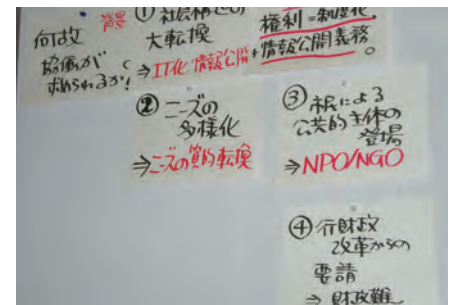 何故
協働が
求められるか!
背景
① 社会構造の
大転換
⇒IT化 情報公開
権利=制度化
+情報公開義務。
② ニーズの
多様化
⇒ニーズの質的転換
③ 市民による
公共的主体の
登場
⇒NPO/NGO
④ 行財政
改革からの
要請
⇒ 財政難